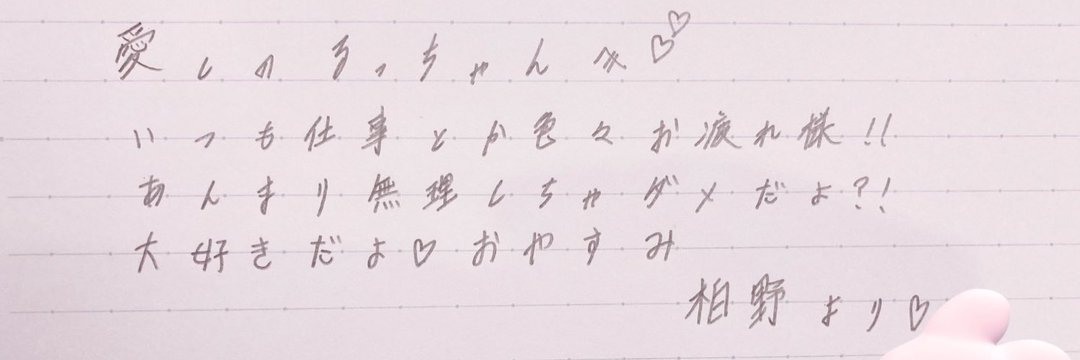 愛しのるっちゃんへ♡♡
いつも仕事とか色々お疲れ様!!
あんまり無理しちゃダメだよ?!
大好きだよ♡おやすみ
柏野より♡